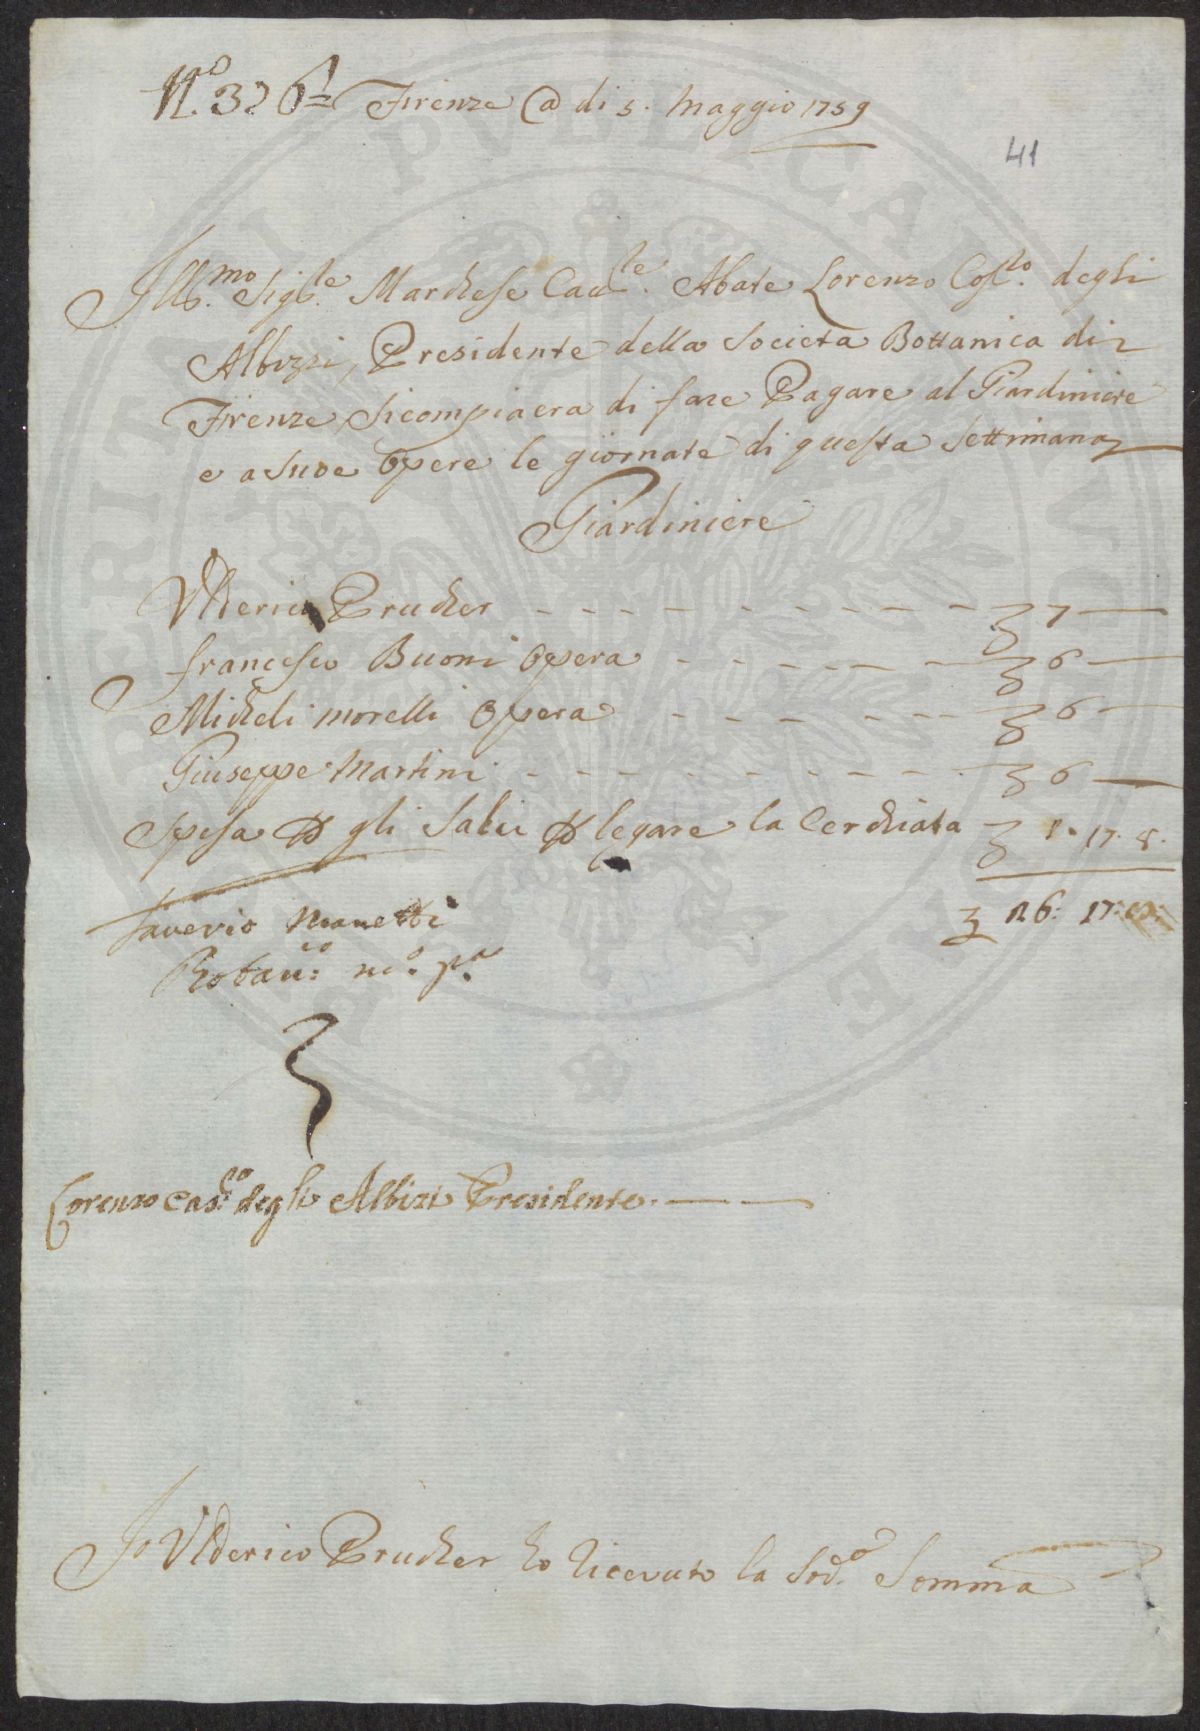 N.o 326= Firenze @ di 5. Maggio 1759
41
Ill.mo Sig.le Marchese Cau.le Abate Lorenzo Cos.to degli
Albizzi, Presidente della Societa Bottanica di
Firenze, Sicompiacera di fare Pagare al Giardiniere
e a Sude Opere le giornate di questa Settimana
Giardiniere
Ulderico Prucher - - - - - - - - - - 7 —
francesco Buoni Opera - - - - - - - 6 —
Micheli morelli Opera - - - - - - - 6 —
Giuseppe Martini - - - - - - - - - - 6 —
Spesa p gli Salci p legare la Cerchiata 1. 17. 8.
26: 17: 8:
Saverio Manetti
m.o p.a
Lorenzo Cas.to degli Albizi Presidente. — —
Io Ulderico Prucher ho Riceuuto la Sod.a Somma